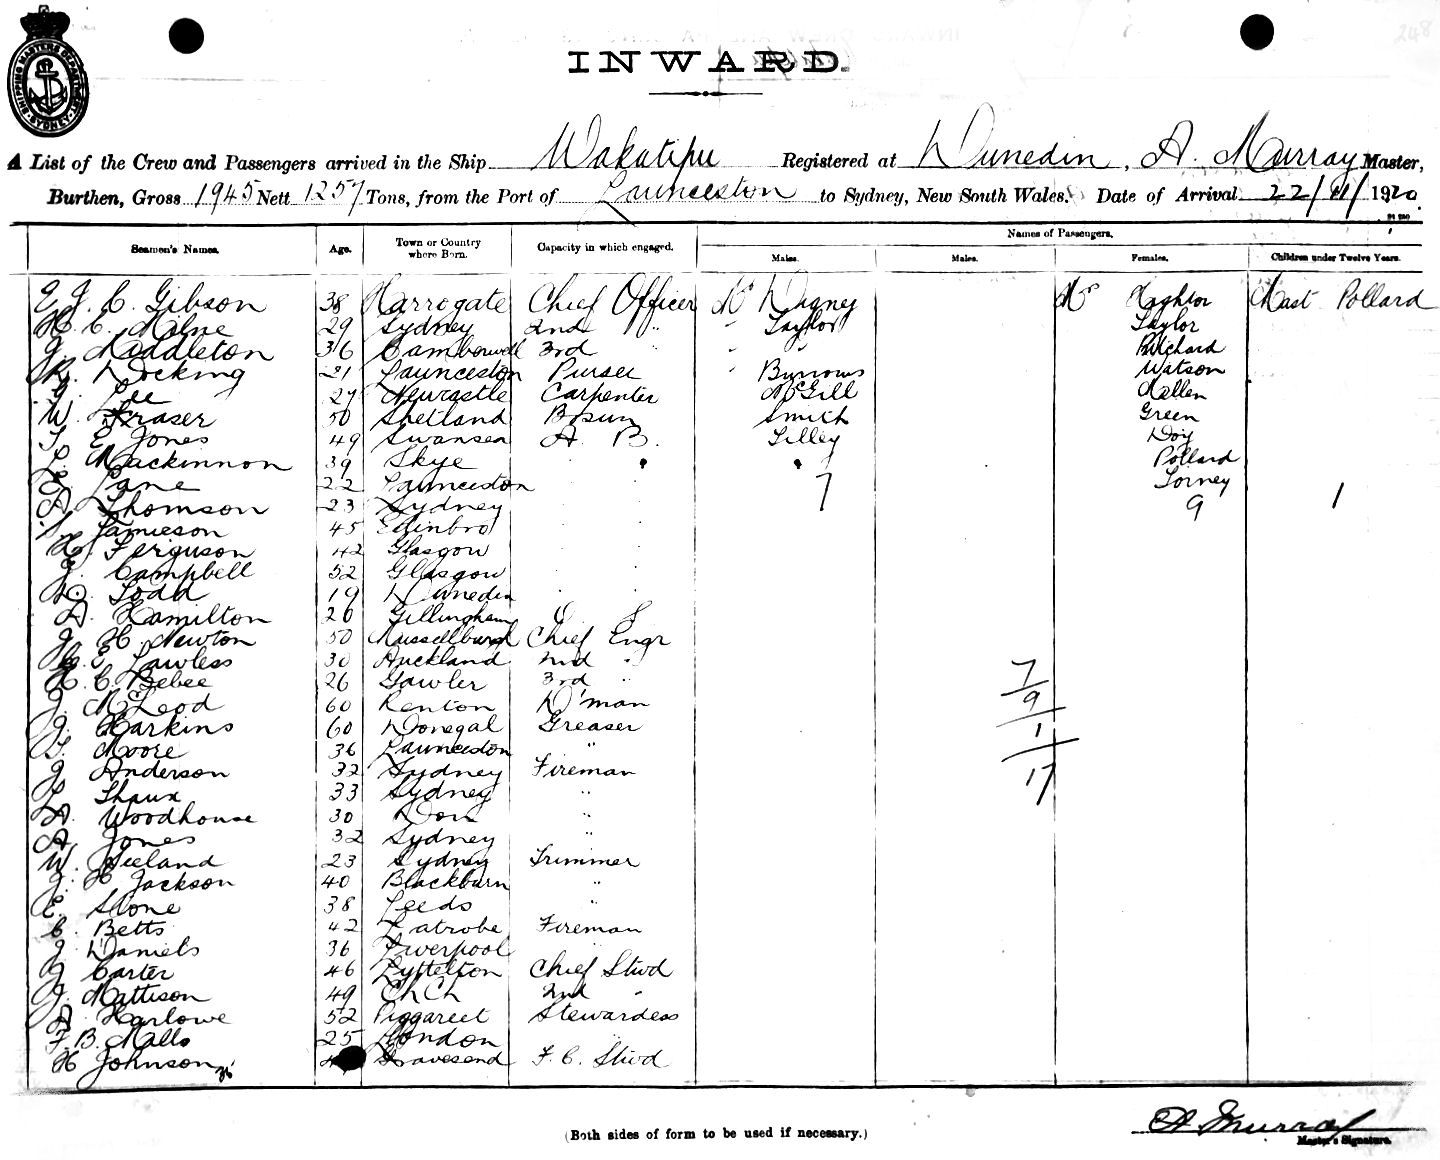 INWARD.
SHIPPING MASTERS DEPARTMENT SYDNEY
A List of the Crew and Passengers arrived in the Ship Wakatipu Registered at Dunedin, A. Murray Master,
Burthen, Gross 1945 Nett 1257 Tons, from the Port of Launceston to Sydney, New South Wales. Date of Arrival 22/11/1920.
Names of Passengers.
Seamen's Names. Age. Town or Country where Born. Capacity in which engaged. Males. Males. Females. Children under Twelve Years.
E J. C. Gibson 38 Harrogate Chief Officer Mr Digney Mrs Mast Pollard
H. C. Milne 29 Sydney 2nd " " Taylor Taylor
J. Middleton 36 Camberwell 3rd " " Pritchard
R. Docking 21 Launceston Purser " Burrows Watson
G. Lee 27 Newcastle Carpenter McGill Mallen
W. Fraser 50 Shetland Bosun Smith Green
T. E. Jones 49 Swansea A. B. Lilley Doig
L. Mackinnon 39 Skye Pollard
E. Lane 22 Launceston 7 Torney
A. Thomson 23 Sydney 9 1
Jamieson 45 Edinbro
H. Ferguson 42 Glasgow
J. Campbell 52 Glasgow
D. Todd 19 Dunedin
A. Hamilton 20 Gillingham O. S
J. H. Newton 50 Musselburgh Chief Engr
E. Lawless 30 Auckland 2nd "
H. C. Bebee 26 Gawler 3rd " 7
J. McLeod 60 Renton D'man 9
J. Harkins 60 Donegal Greaser 1
T. Moore 36 Launceston "
J. Anderson 32 Sydney Fireman 17
T. 33 Sydney "
A. Woodhouse 30 Don "
A. Jones 32 Sydney "
W. Seeland 23 Sydney Trimmer
J. H Jackson 40 Blackburn "
E. Stone 38 Leeds "
C. Betts 42 Latrobe Fireman
J. Daniels 36 Liverpool "
J. Carter 46 Lyttelton Chief Stwd
J. Mattison 49 ChCh 2nd "
A. Harlowe 52 Stewardess
F. B. Malls 25 London
H Johnson 4 Gravesend F. C. Stwd
(Both sides of form to be used if necessary.)
A Murray
Master's Signature.